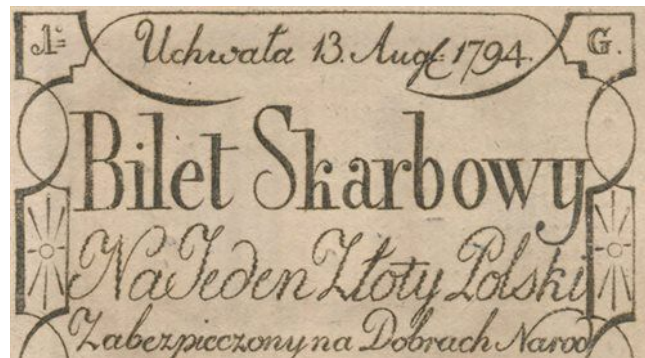 A. Uchwała 13. Aug. 1794. G.
Bilet Skarbowy
Na Jeden Złoty Polski
Zabezpieczony na Dobrach Narod